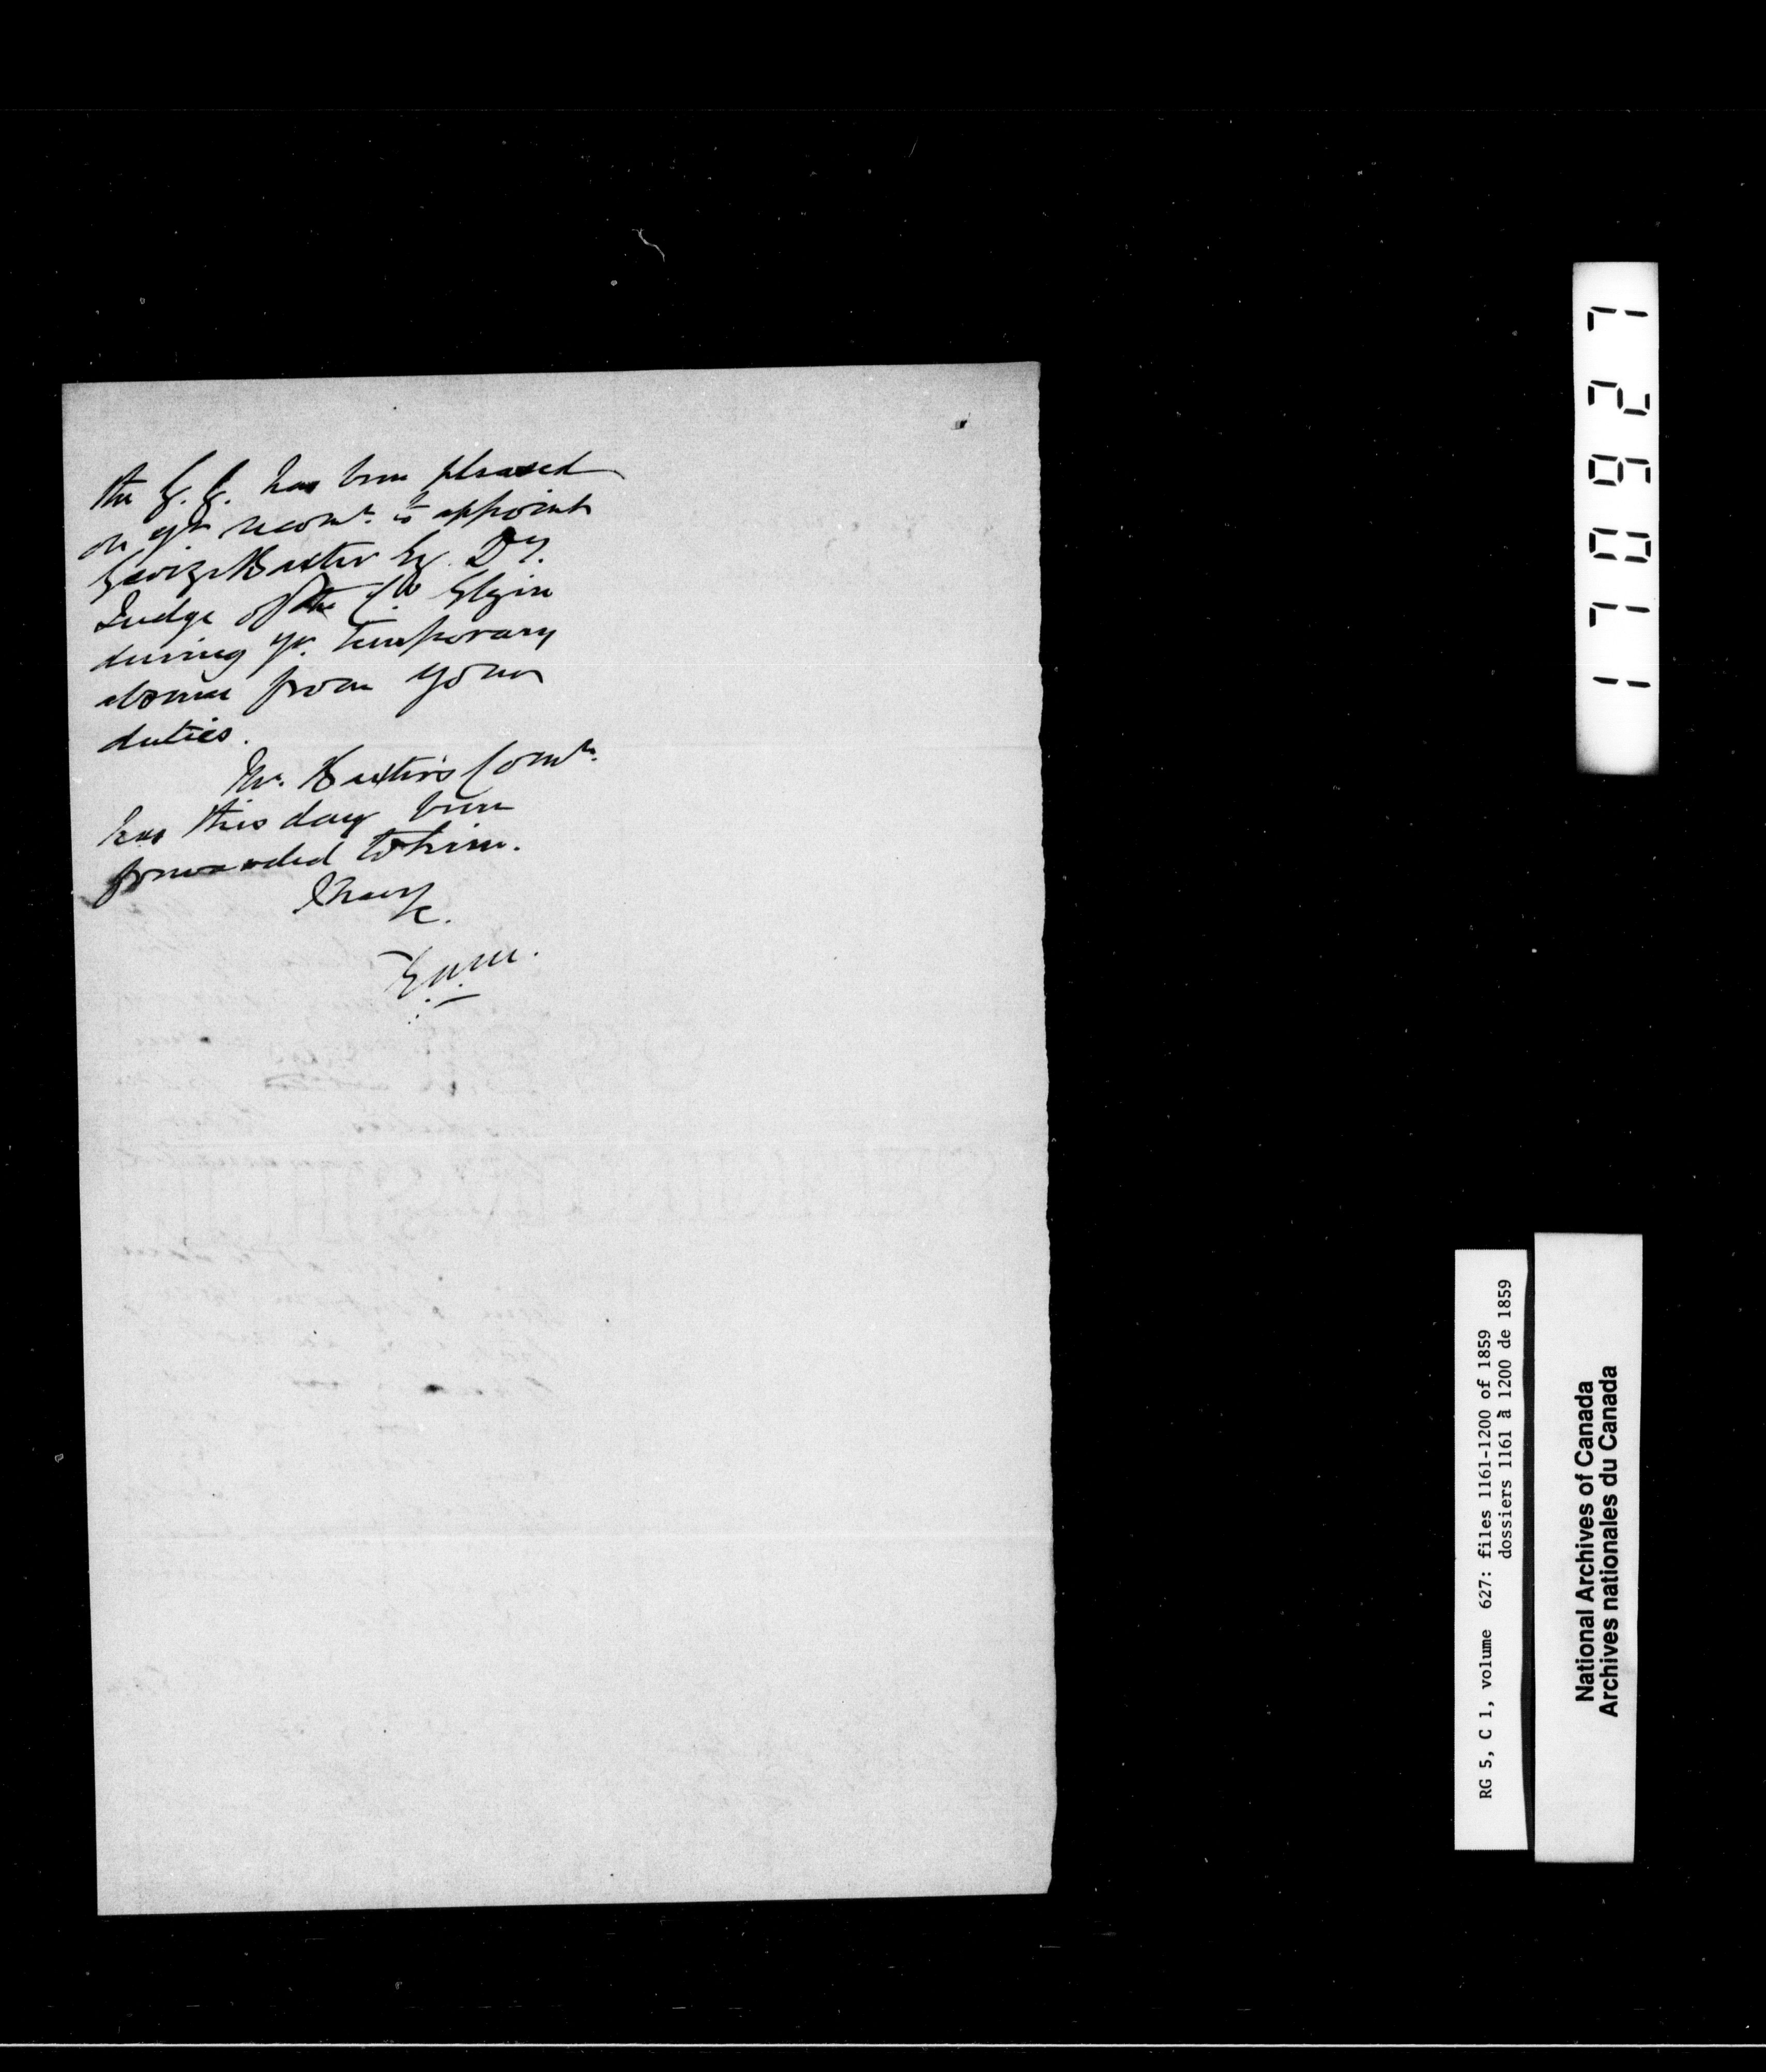 the G. G. has been pleased
on yr recomn. to appoint
George Baxter Esq. Dy.
Judge of the Co. Elgin
during yr. temporary
absence from your
duties.
Mr. Baxter's Comn.
has this day been
forwarded to him.
I have
&c.
170927
RG 5, C 1, volume 627: files 1161-1200 of 1859
dossiers 1161 à 1200 de 1859
National Archives of Canada
Archives nationales du Canada